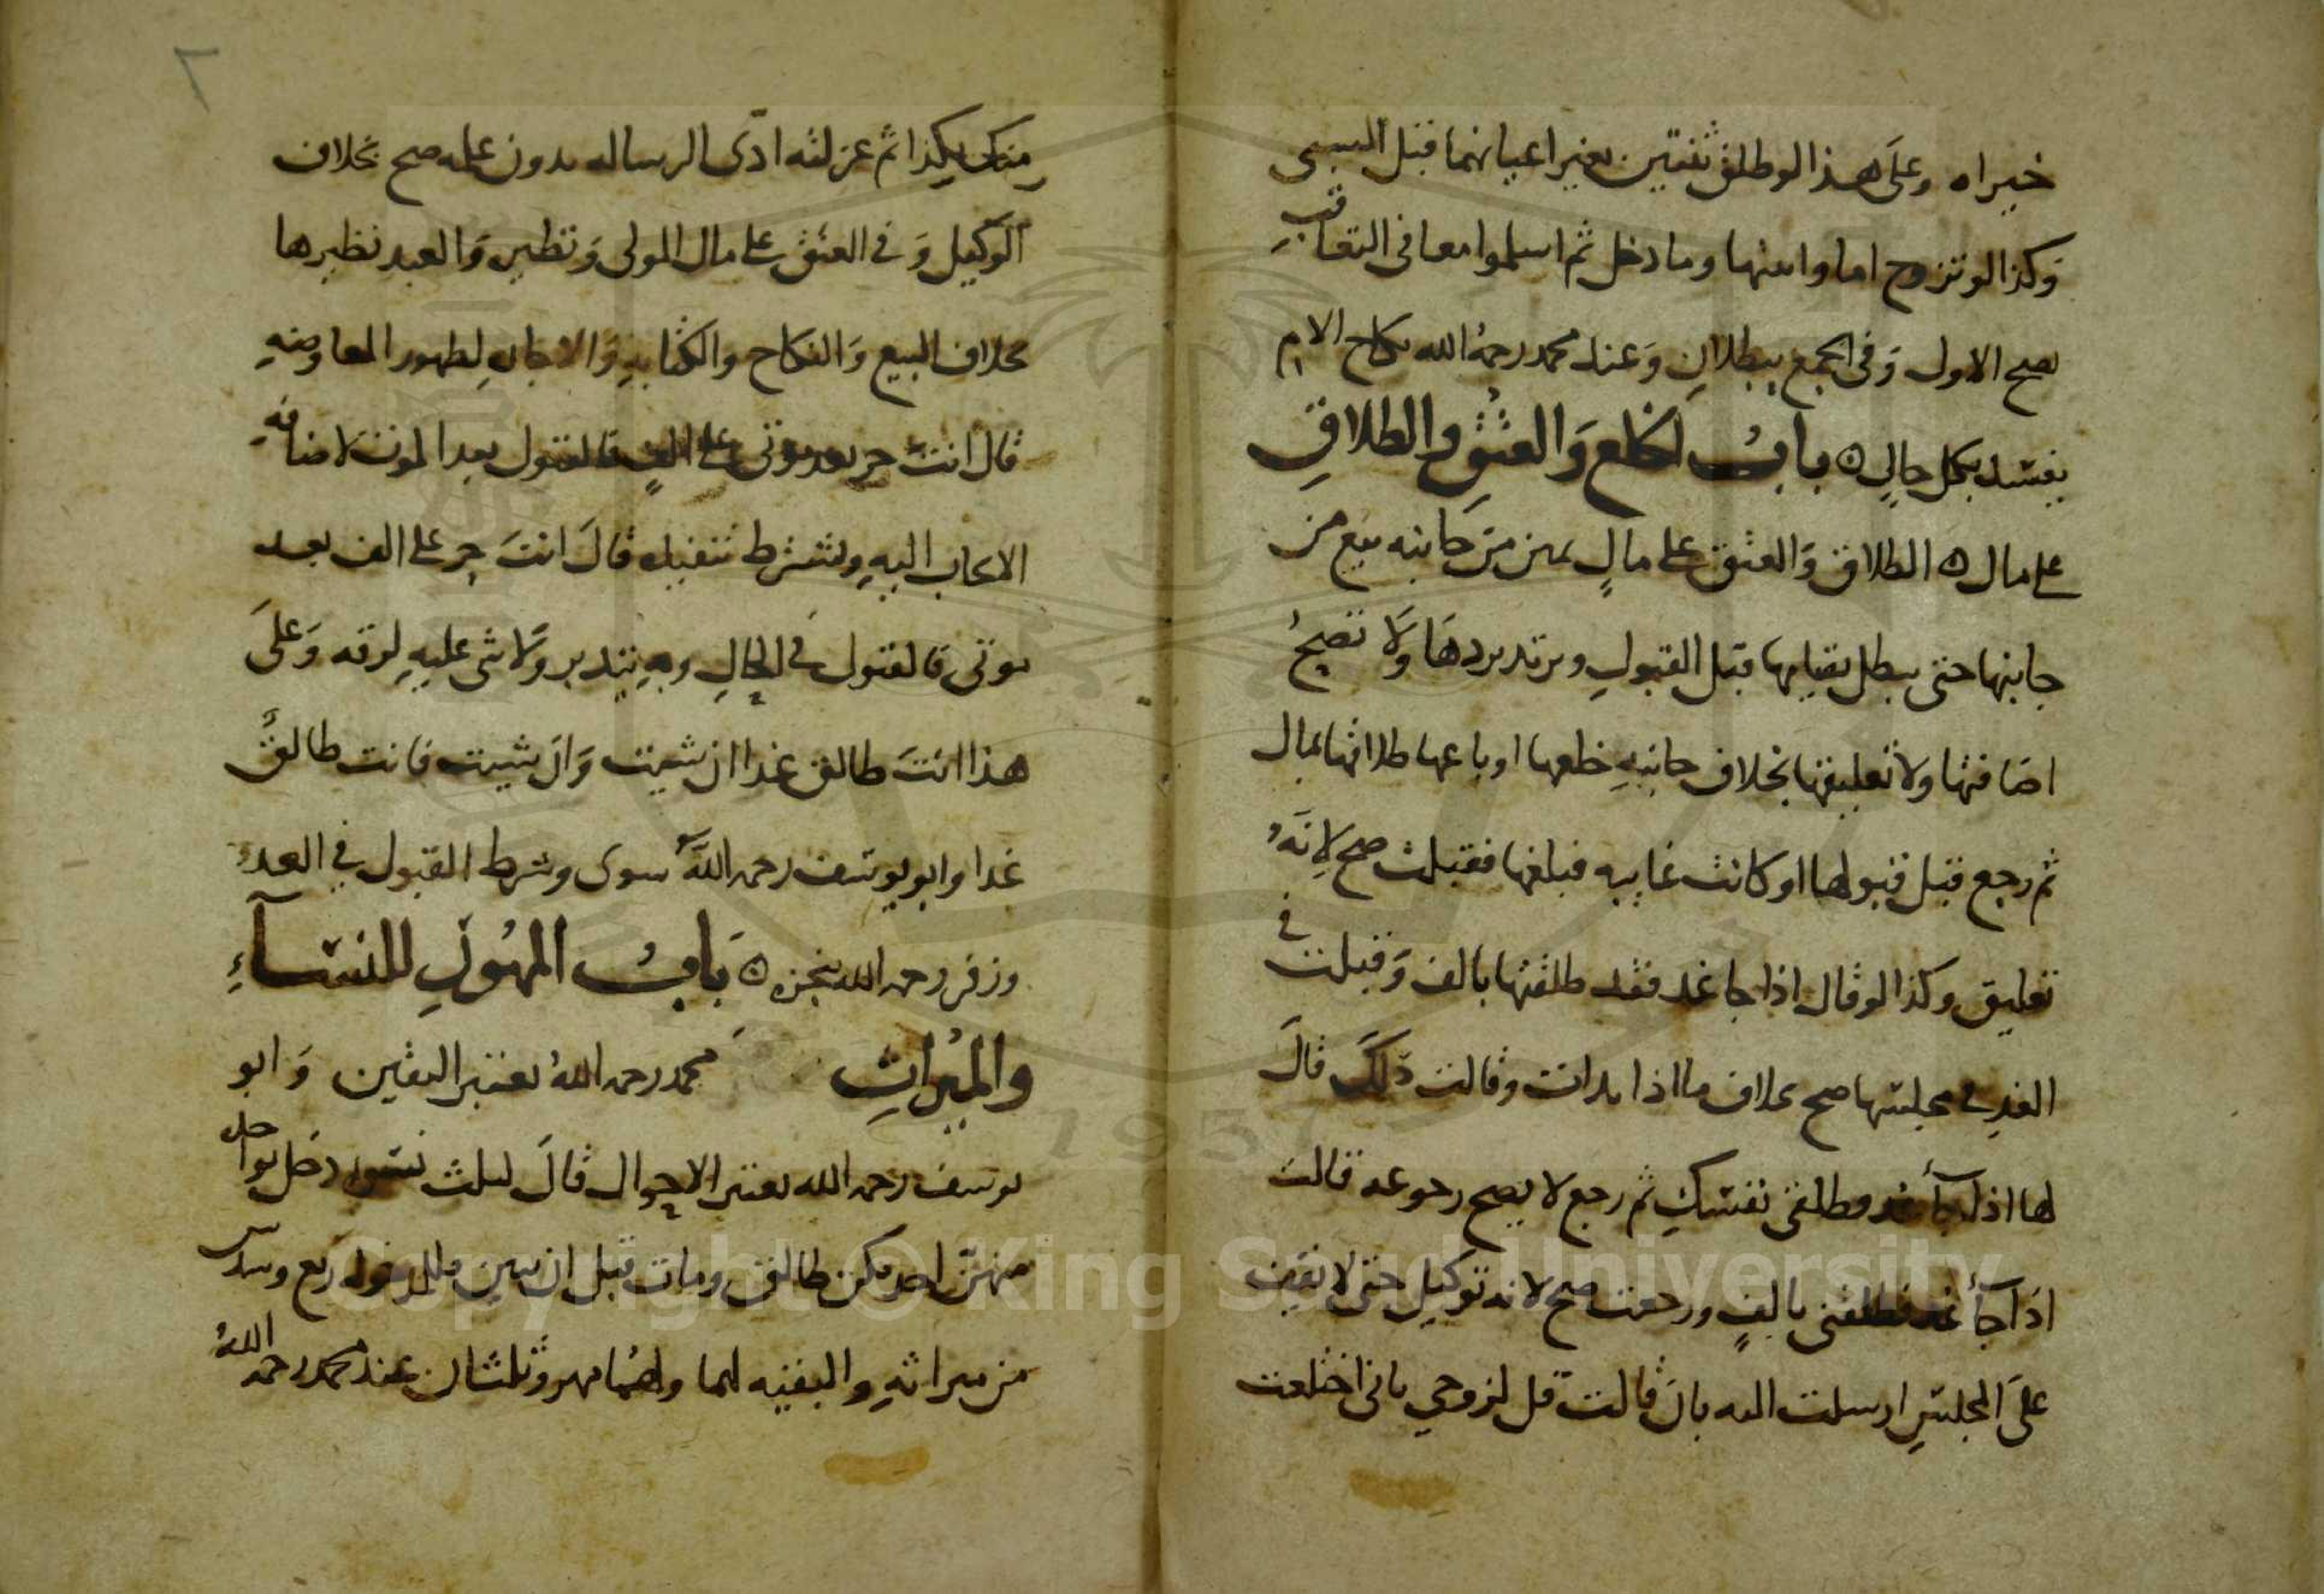 خيراه وعلى هذا لو طلق ثنتين بغير اعيانهما قبل السبي
وكذا لو تزوج اما وابنتها وما دخل ثم اسلموا معا في التعاقب
يصح الاول وفي الجمع يبطلان وعند محمد رحمه الله نكاح الام
يفسد بكل حال ه باب الخلع والعتق والطلاق
على مال ه الطلاق والعتق على مال يمين من جانبه بيع من
جانبها حتى يبطل بقيامها قبل القبول ويرتد بردها ولا تصح
اضافتها ولا تعليقها بخلاف جانبه خلعها او باعها طلاقها بمال
ثم رجع قبل قبولها او كانت غايبه فبلغها فقبلت صح لانه
تعليق وكذا لو قال اذا جا غد فقد طلقتها بالف وقبلت في
الغد في مجلسها صح بخلاف ما اذا بدات وقالت ذلك قال
لها اذا جآ غد فطلقي نفسك ثم رجع لا يصح رجوعه قالت
اذا جآ غد فطلقني بالف ورجعت صح لانه توكيل حتى لا
على المجلس ارسلت اليه بان قالت قل لزوجي باني اختلعت
٢
منك بكذا ثم عزلته ادى الرساله بدون علمه صح بخلاف
الوكيل وفي العتق على مال المولى ونظيره والعبد نظيرها
بخلاف البيع والنكاح والكتابه والاجاره لظهور المعاوضه
قال انت حر بعد موتي على الف فالقبول بعد الموت لاضافه
الايجاب اليه ويشترط تنفيذه قال انت حر على الف بعد
موتي فالقبول في الحال وبه يتدبر ولا شي عليه لرقه وعلى
هذا انت طالق غدا ان شيت وان شيت فانت طالق
غدا وابو يوسف رحمه الله سوى وشرط القبول في الغد
وزفر رحمه الله ينجزه ه باب المهول للنسآء
والميراث محمد رحمه الله يعتبر اليقين وابو
يوسف رحمه الله يعتبر الاحوال قال لثلث نسوه دخل بواحده
منهن احديكن طالق ومات قبل ان يبين فللمدخوله ربع وسدس
من ميراثه والبقيه لهما ولهما مهر وثلثان عند محمد رحمه الله